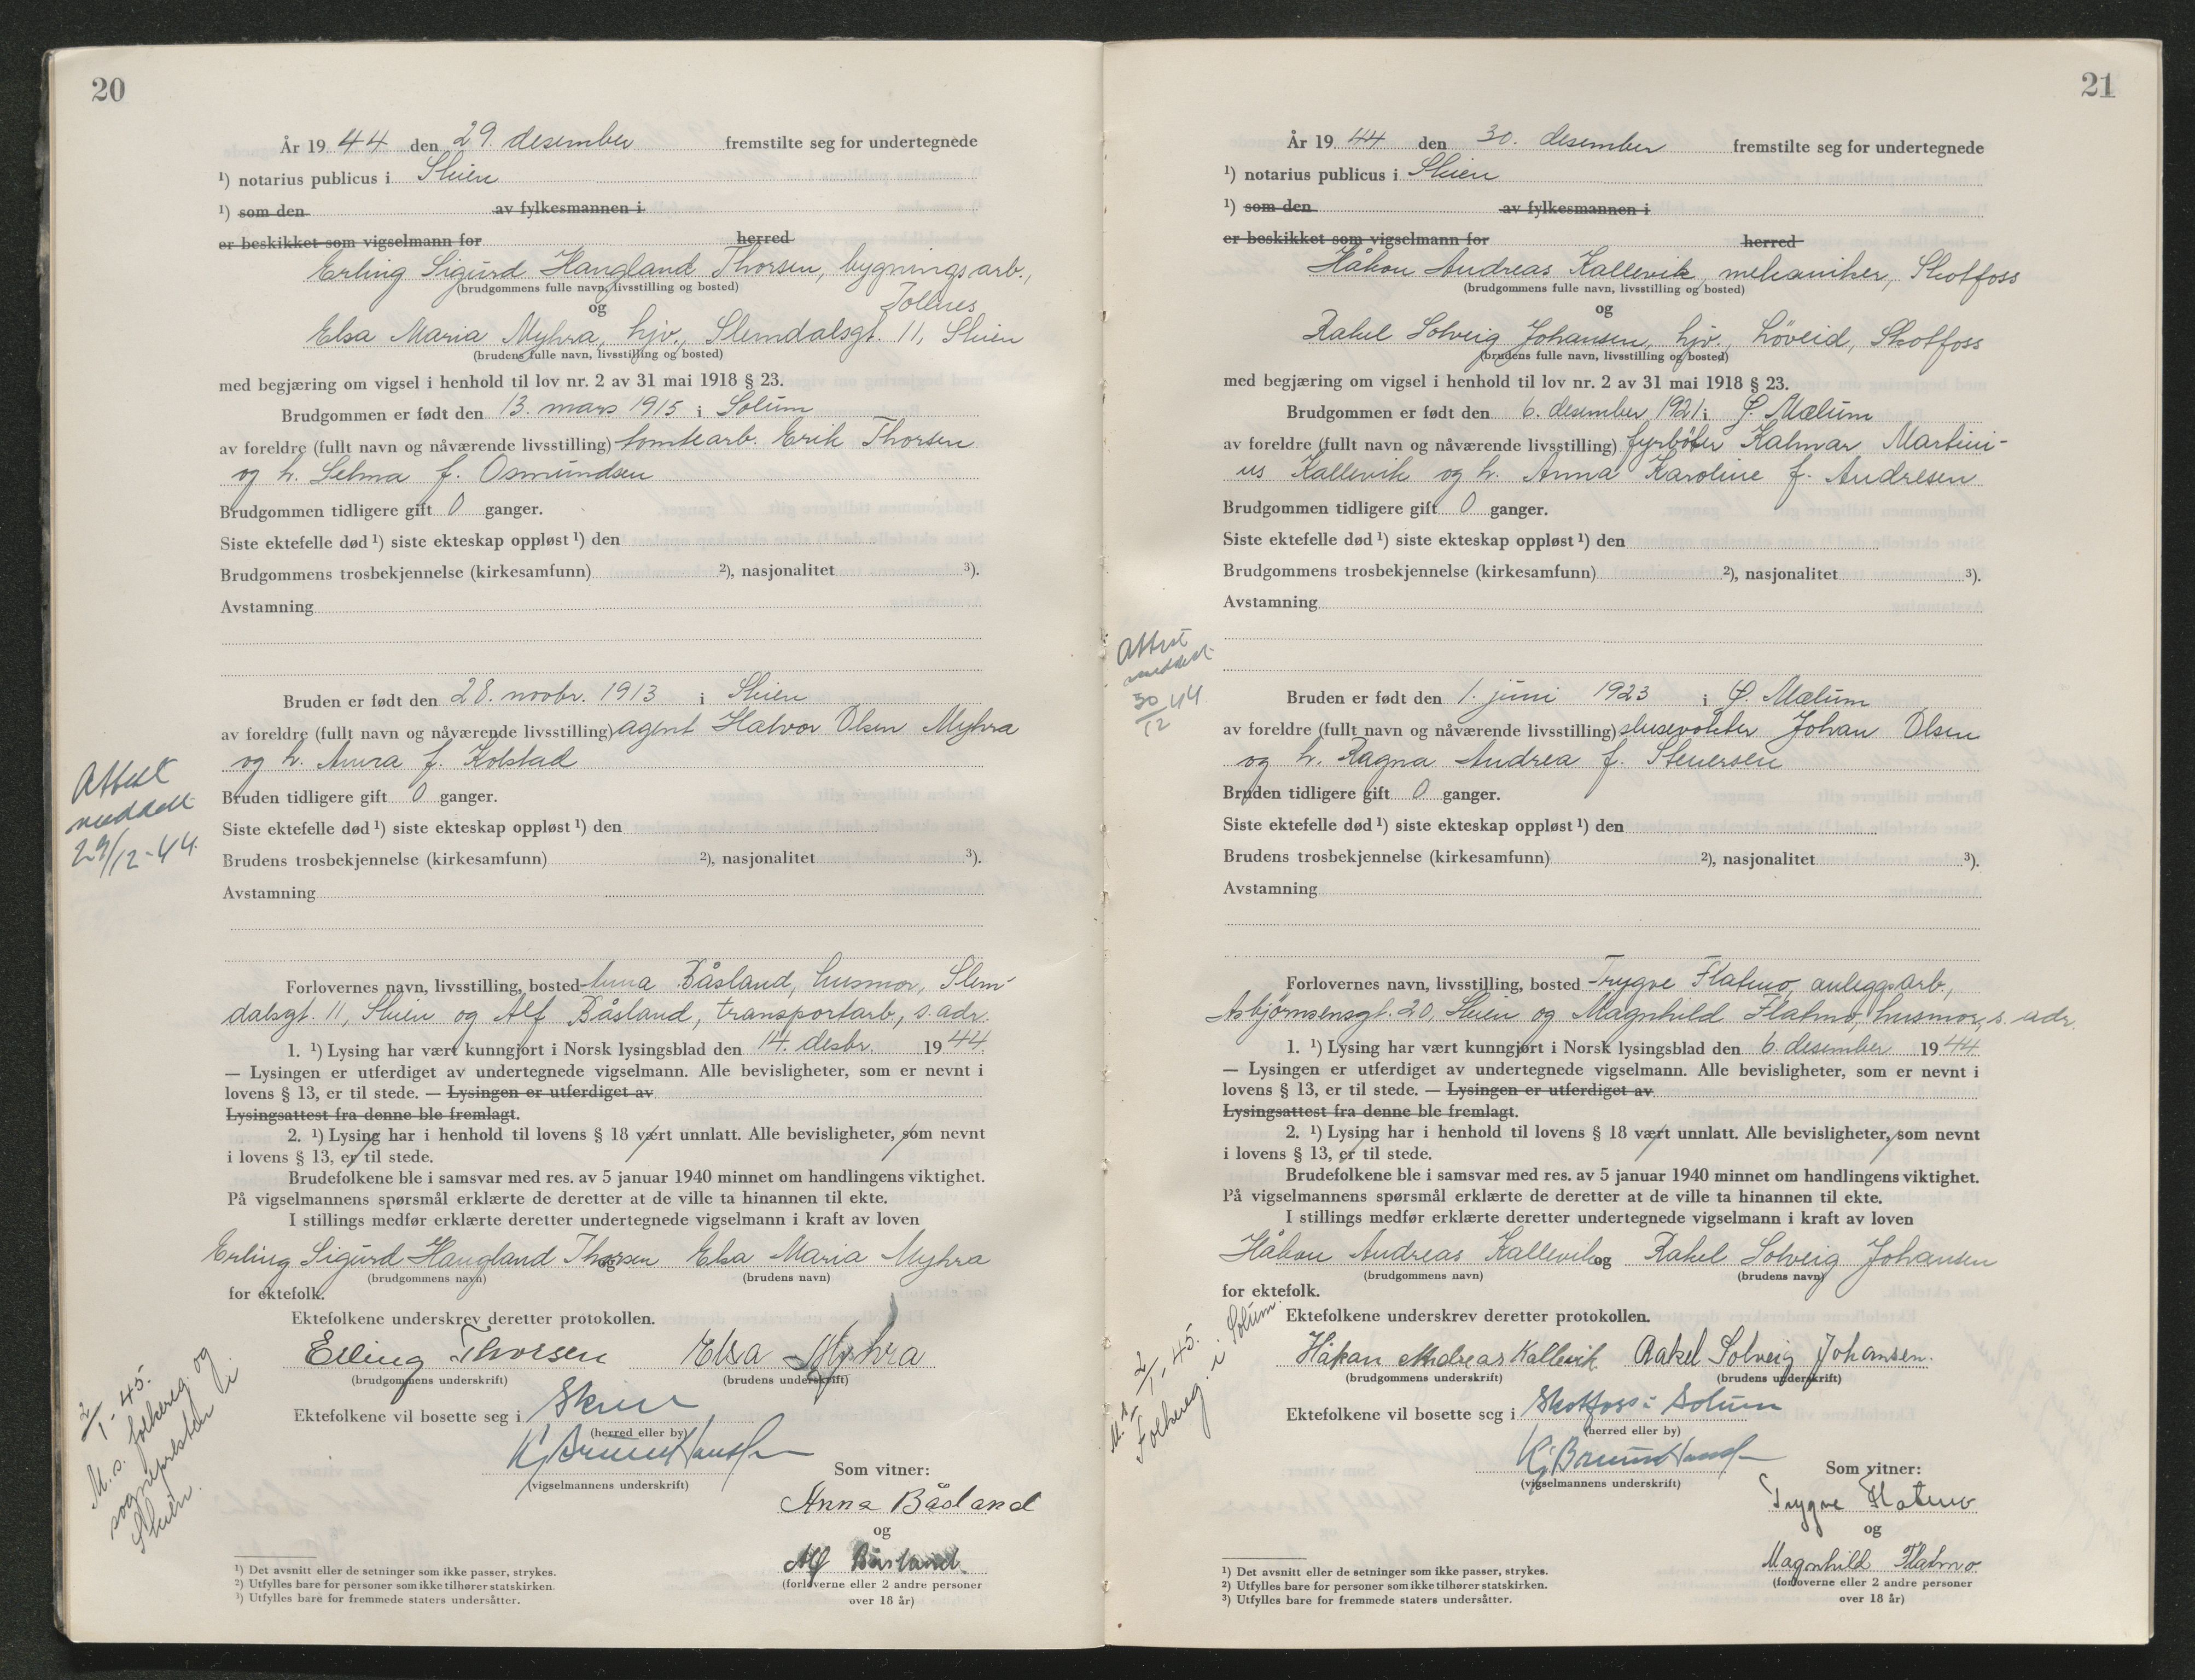 20
År 19 44 den 29. desember fremstilte seg for undertegnede
¹) notarius publicus i Skien
¹) som den av fylkesmannen i
er beskikket som vigselmann for herred
Erling Sigurd Haugland Thorsen, bygningsarb.,
(brudgommens fulle navn, livsstilling og bosted)
Tollnes
og
Elsa Maria Myhra, hjv., Slemdalsgt. 11, Skien
(brudens fulle navn, livsstilling og bosted)
med begjæring om vigsel i henhold til lov nr. 2 av 31 mai 1918 § 23.
Brudgommen er født den 13. mars 1915 i Solum
av foreldre (fullt navn og nåværende livsstilling) tomtearb. Erik Thorsen
og h. Selma f. Osmundsen
Brudgommen tidligere gift 0 ganger.
Siste ektefelle død ¹) siste ekteskap oppløst ¹) den
Brudgommens trosbekjennelse (kirkesamfunn) ²), nasjonalitet ³).
Avstamning
Bruden er født den 28. novbr. 1913 i Skien
av foreldre (fullt navn og nåværende livsstilling) agent Halvor Olsen Myhra
og h. Anna f. Kolstad
Bruden tidligere gift 0 ganger.
Siste ektefelle død ¹) siste ekteskap oppløst ¹) den
Brudens trosbekjennelse (kirkesamfunn) ²), nasjonalitet ³).
Avstamning
Attest
meddelt
29/12-44.
Forlovernes navn, livsstilling, bosted Anna Båsland, husmor, Slem-
dalsgt. 11, Skien og Alf Båsland, transportarb., s. adr.
1. ¹) Lysing har vært kunngjort i Norsk lysingsblad den 14. desbr. 1944
— Lysingen er utferdiget av undertegnede vigselmann. Alle bevisligheter, som er nevnt i
lovens § 13, er til stede. — Lysingen er utferdiget av
Lysingsattest fra denne ble fremlagt.
2. ¹) Lysing har i henhold til lovens § 18 vært unnlatt. Alle bevisligheter, som nevnt
i lovens § 13, er til stede.
Brudefolkene ble i samsvar med res. av 5 januar 1940 minnet om handlingens viktighet.
På vigselmannens spørsmål erklærte de deretter at de ville ta hinannen til ekte.
I stillings medfør erklærte deretter undertegnede vigselmann i kraft av loven
Erling Sigurd Haugland Thorsen og Elsa Maria Myhra
(brudgommens navn) (brudens navn)
for ektefolk.
Ektefolkene underskrev deretter protokollen.
Erling Thorsen Elsa Myhra
(brudgommens underskrift) (brudens underskrift)
Ektefolkene vil bosette seg i Skien
(herred eller by)
(vigselmannens underskrift)
2/1-45.
M. s. folkereg. og
sognepresten i
Skien.
Som vitner:
Anna Båsland
og
Alf Båsland
(forloverne eller 2 andre personer
over 18 år)
¹) Det avsnitt eller de setninger som ikke passer, strykes.
²) Utfylles bare for personer som ikke tilhører statskirken.
³) Utfylles bare for fremmede staters undersåtter.
21
År 19 44 den 30. desember fremstilte seg for undertegnede
¹) notarius publicus i Skien
¹) som den av fylkesmannen i
er beskikket som vigselmann for herred
Håkon Andreas Kallevik, mekaniker, Skotfoss
(brudgommens fulle navn, livsstilling og bosted)
og
Rakel Solveig Johansen, hjv., Løveid, Skotfoss
(brudens fulle navn, livsstilling og bosted)
med begjæring om vigsel i henhold til lov nr. 2 av 31 mai 1918 § 23.
Brudgommen er født den 6. desember 1921 i Ø. Mælum
av foreldre (fullt navn og nåværende livsstilling) fyrbøter Kalmar Martini-
us Kallevik og h. Anna Karoline f. Andresen
Brudgommen tidligere gift 0 ganger.
Siste ektefelle død ¹) siste ekteskap oppløst ¹) den
Brudgommens trosbekjennelse (kirkesamfunn) ²), nasjonalitet ³).
Avstamning
Attest
meddelt
30/12 44
Bruden er født den 1. juni 1923 i Ø. Mælum
av foreldre (fullt navn og nåværende livsstilling) slusevokter Johan Olsen
og h. Ragna Andrea f. Stenersen
Bruden tidligere gift 0 ganger.
Siste ektefelle død ¹) siste ekteskap oppløst ¹) den
Brudens trosbekjennelse (kirkesamfunn) ²), nasjonalitet ³).
Avstamning
Forlovernes navn, livsstilling, bosted Trygve Flatmo, anleggsarb.,
Asbjørnsensgt. 20, Skien og Magnhild Flatmo, husmor, s. adr.
1. ¹) Lysing har vært kunngjort i Norsk lysingsblad den 6. desember 1944
— Lysingen er utferdiget av undertegnede vigselmann. Alle bevisligheter, som er nevnt i
lovens § 13, er til stede. — Lysingen er utferdiget av
Lysingsattest fra denne ble fremlagt.
2. ¹) Lysing har i henhold til lovens § 18 vært unnlatt. Alle bevisligheter, som nevnt
i lovens § 13, er til stede.
Brudefolkene ble i samsvar med res. av 5 januar 1940 minnet om handlingens viktighet.
På vigselmannens spørsmål erklærte de deretter at de ville ta hinannen til ekte.
I stillings medfør erklærte deretter undertegnede vigselmann i kraft av loven
Håkon Andreas Kallevik og Rakel Solveig Johansen
(brudgommens navn) (brudens navn)
for ektefolk.
Ektefolkene underskrev deretter protokollen.
Håkan Andreas Kallevik Rakel Solveig Johansen.
(brudgommens underskrift) (brudens underskrift)
Ektefolkene vil bosette seg i Skotfoss i Solum
(herred eller by)
(vigselmannens underskrift)
M. s. 2/1-45.
Folkereg. i Solum
Som vitner:
Trygve Flatmo
og
Magnhild Flatmo
(forloverne eller 2 andre personer
over 18 år)
¹) Det avsnitt eller de setninger som ikke passer, strykes.
²) Utfylles bare for personer som ikke tilhører statskirken.
³) Utfylles bare for fremmede staters undersåtter.